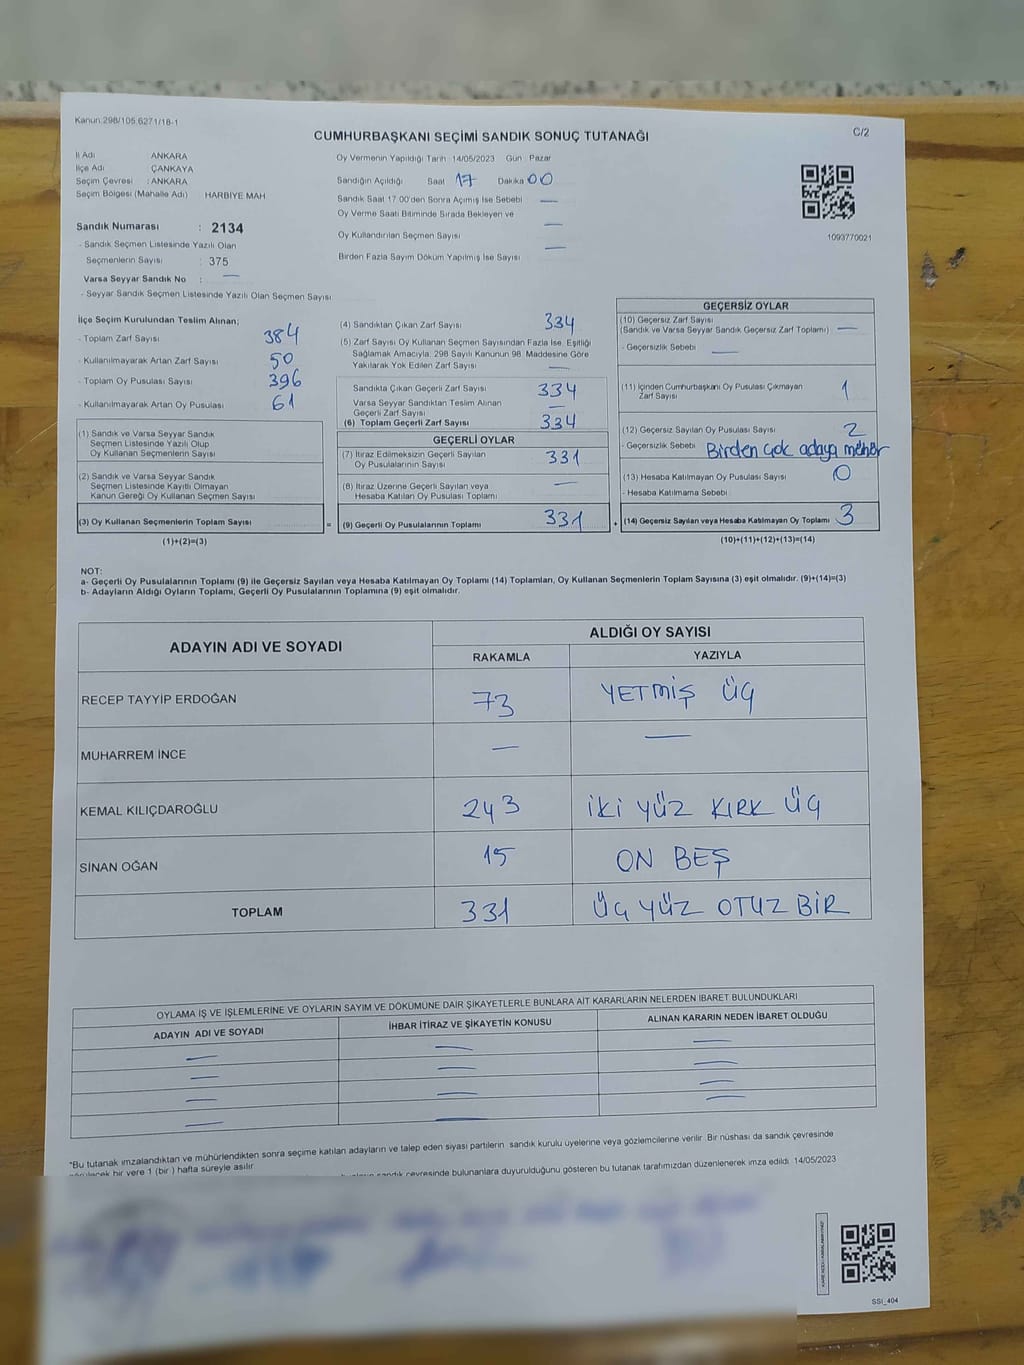 Kanun:298/105.6271/18-1
CUMHURBAŞKANI SEÇİMİ SANDIK SONUÇ TUTANAĞI
C/2
İl Adı ANKARA
İlçe Adı ÇANKAYA
Seçim Çevresi : ANKARA
Seçim Bölgesi (Mahalle Adı) HARBİYE MAH
Oy Vermenin Yapıldığı Tarih 14/05/2023 Gün Pazar
Sandığın Açıldığı Saat 17 Dakika 00
Sandık Saat 17:00'den Sonra Açılmış İse Sebebi —
Oy Verme Saati Bitiminde Sırada Bekleyen ve
Oy Kullandırılan Seçmen Sayısı —
Birden Fazla Sayım Döküm Yapılmış İse Sayısı —
1093770021
Sandık Numarası : 2134
- Sandık Seçmen Listesinde Yazılı Olan
Seçmenlerin Sayısı : 375
Varsa Seyyar Sandık No : —
- Seyyar Sandık Seçmen Listesinde Yazılı Olan Seçmen Sayısı
İlçe Seçim Kurulundan Teslim Alınan;
- Toplam Zarf Sayısı 384
- Kullanılmayarak Artan Zarf Sayısı 50
- Toplam Oy Pusulası Sayısı 396
- Kullanılmayarak Artan Oy Pusulası 61
(1) Sandık ve Varsa Seyyar Sandık
Seçmen Listesinde Yazılı Olup
Oy Kullanan Seçmenlerin Sayısı
(2) Sandık ve Varsa Seyyar Sandık
Seçmen Listesinde Kayıtlı Olmayan
Kanun Gereği Oy Kullanan Seçmen Sayısı
(3) Oy Kullanan Seçmenlerin Toplam Sayısı
(1)+(2)=(3)
=
(4) Sandıktan Çıkan Zarf Sayısı 334
(5) Zarf Sayısı Oy Kullanan Seçmen Sayısından Fazla İse, Eşitliği
Sağlamak Amacıyla, 298 Sayılı Kanunun 98. Maddesine Göre
Yakılarak Yok Edilen Zarf Sayısı —
Sandıkta Çıkan Geçerli Zarf Sayısı 334
Varsa Seyyar Sandıktan Teslim Alınan
Geçerli Zarf Sayısı —
(6) Toplam Geçerli Zarf Sayısı 334
GEÇERLİ OYLAR
(7) İtiraz Edilmeksizin Geçerli Sayılan
Oy Pusulalarının Sayısı 331
(8) İtiraz Üzerine Geçerli Sayılan veya
Hesaba Katılan Oy Pusulası Toplamı —
(9) Geçerli Oy Pusulalarının Toplamı 331
+
GEÇERSİZ OYLAR
(10) Geçersiz Zarf Sayısı
(Sandık ve Varsa Seyyar Sandık Geçersiz Zarf Toplamı) —
- Geçersizlik Sebebi —
(11) İçinden Cumhurbaşkanı Oy Pusulası Çıkmayan
Zarf Sayısı 1
(12) Geçersiz Sayılan Oy Pusulası Sayısı 2
- Geçersizlik Sebebi Birden çok adaya mühür
(13) Hesaba Katılmayan Oy Pusulası Sayısı 0
- Hesaba Katılmama Sebebi
(14) Geçersiz Sayılan veya Hesaba Katılmayan Oy Toplamı 3
(10)+(11)+(12)+(13)=(14)
NOT:
a- Geçerli Oy Pusulalarının Toplamı (9) ile Geçersiz Sayılan veya Hesaba Katılmayan Oy Toplamı (14) Toplamları, Oy Kullanan Seçmenlerin Toplam Sayısına (3) eşit olmalıdır. (9)+(14)=(3)
b- Adayların Aldığı Oyların Toplamı, Geçerli Oy Pusulalarının Toplamına (9) eşit olmalıdır.
ADAYIN ADI VE SOYADI
ALDIĞI OY SAYISI
RAKAMLA YAZIYLA
RECEP TAYYİP ERDOĞAN 73 YETMİŞ ÜÇ
MUHARREM İNCE — —
KEMAL KILIÇDAROĞLU 243 İKİ YÜZ KIRK ÜÇ
SİNAN OĞAN 15 ON BEŞ
TOPLAM 331 ÜÇ YÜZ OTUZ BİR
OYLAMA İŞ VE İŞLEMLERİNE VE OYLARIN SAYIM VE DÖKÜMÜNE DAİR ŞİKAYETLERLE BUNLARA AİT KARARLARIN NELERDEN İBARET BULUNDUKLARI
ADAYIN ADI VE SOYADI İHBAR İTİRAZ VE ŞİKAYETİN KONUSU ALINAN KARARIN NEDEN İBARET OLDUĞU
— — —
— — —
— — —
— — —
*Bu tutanak imzalandıktan ve mühürlendikten sonra seçime katılan adayların ve talep eden siyasi partilerin sandık kurulu üyelerine veya gözlemcilerine verilir. Bir nüshası da sandık çevresinde
bir yere 1 (bir) hafta süreyle asılır
sandık çevresinde bulunanlara duyurulduğunu gösteren bu tutanak tarafımızdan düzenlenerek imza edildi. 14/05/2023
SSİ_404